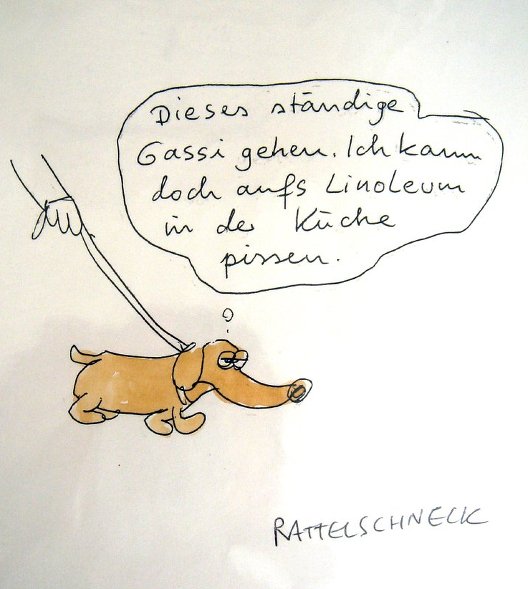 Dieses ständige
Gassi gehen. Ich kann
doch aufs Linoleum
in der Küche
pissen.
RATTELSCHNECK